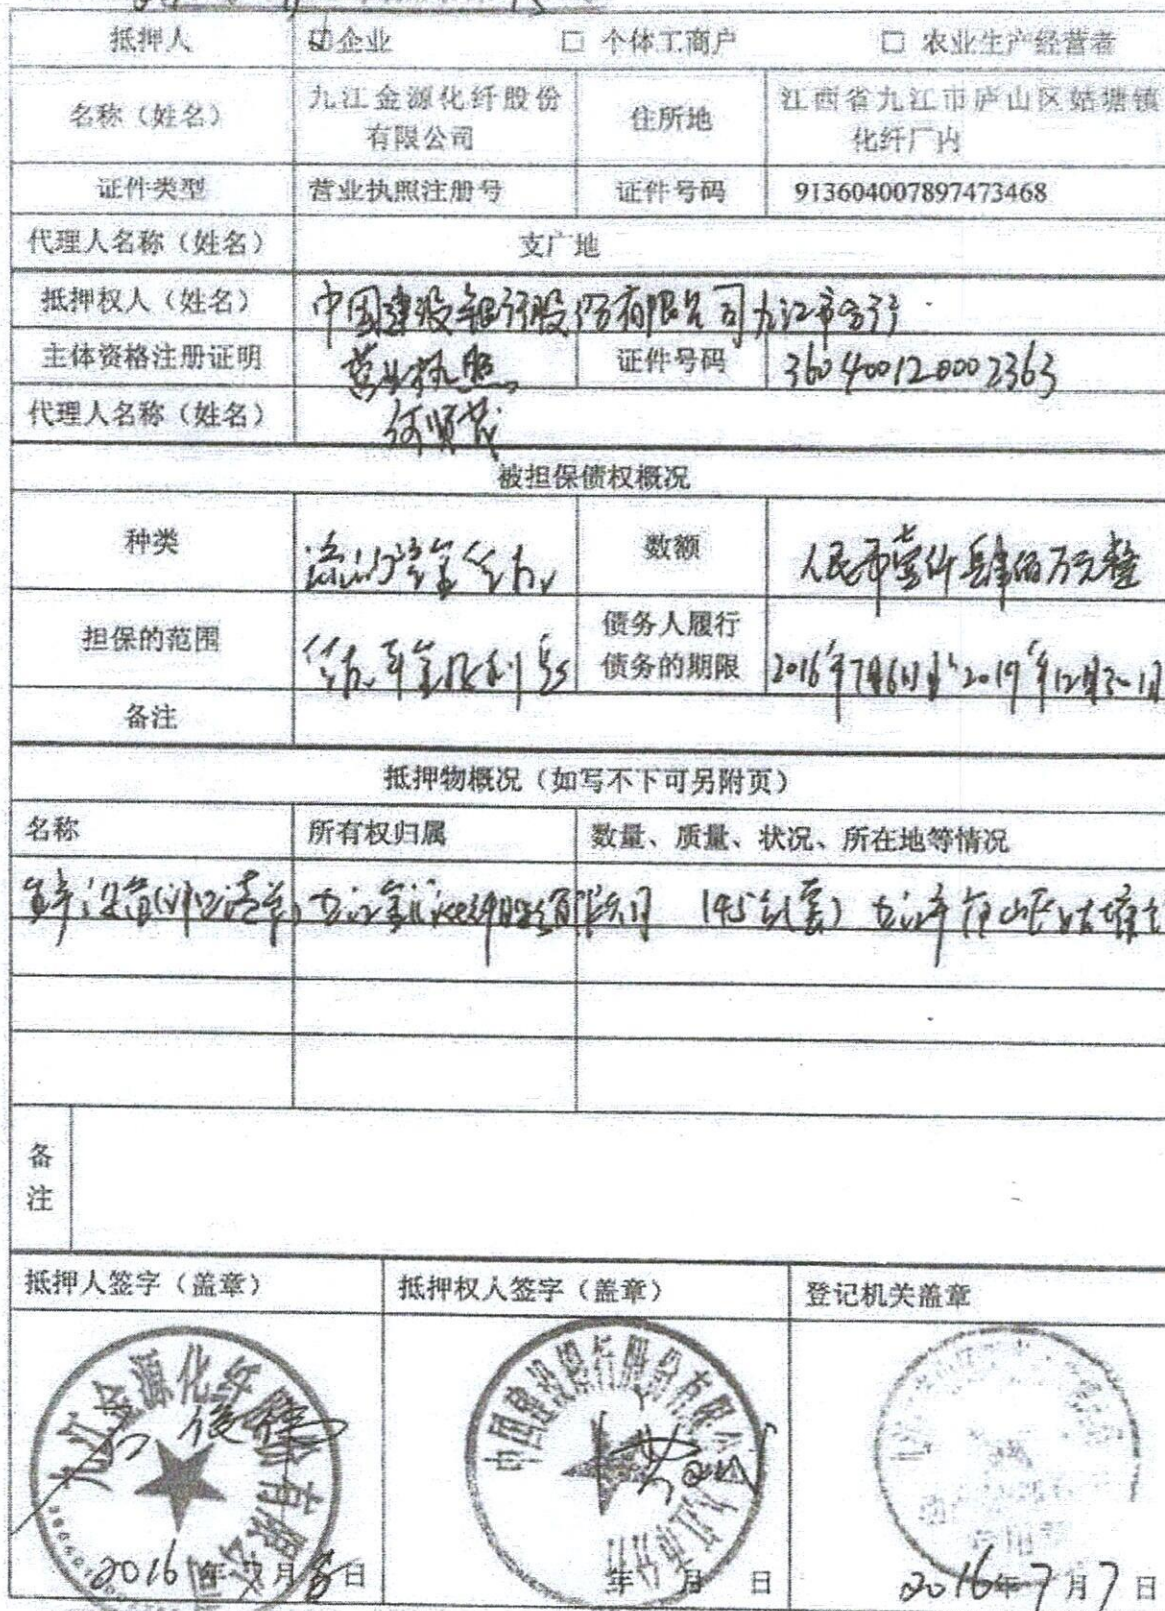 抵押人 ☑企业 □ 个体工商户 □ 农业生产经营者
名称（姓名） 九江金源化纤股份有限公司 住所地 江西省九江市庐山区姑塘镇化纤厂内
证件类型 营业执照注册号 证件号码 913604007897473468
代理人名称（姓名） 支广地
抵押权人（姓名） 中国建设银行股份有限公司九江市分行
主体资格注册证明 营业执照 证件号码 360400120002363
代理人名称（姓名）
被担保债权概况
种类 流动资金贷款 数额 人民币壹仟肆佰万元整
担保的范围 贷款本金及利息 债务人履行债务的期限 2016年7月6日 2019年12月30日
备注
抵押物概况（如写不下可另附页）
名称 所有权归属 数量、质量、状况、所在地等情况
九江金源化纤股份有限公司 145台(套) 九江市庐山区姑塘
备注
抵押人签字（盖章） 抵押权人签字（盖章） 登记机关盖章
九江金源化纤股份有限公司 中国建设银行股份有限公司九江市分行
2016年7月 日 年 月 日 2016年7月7日